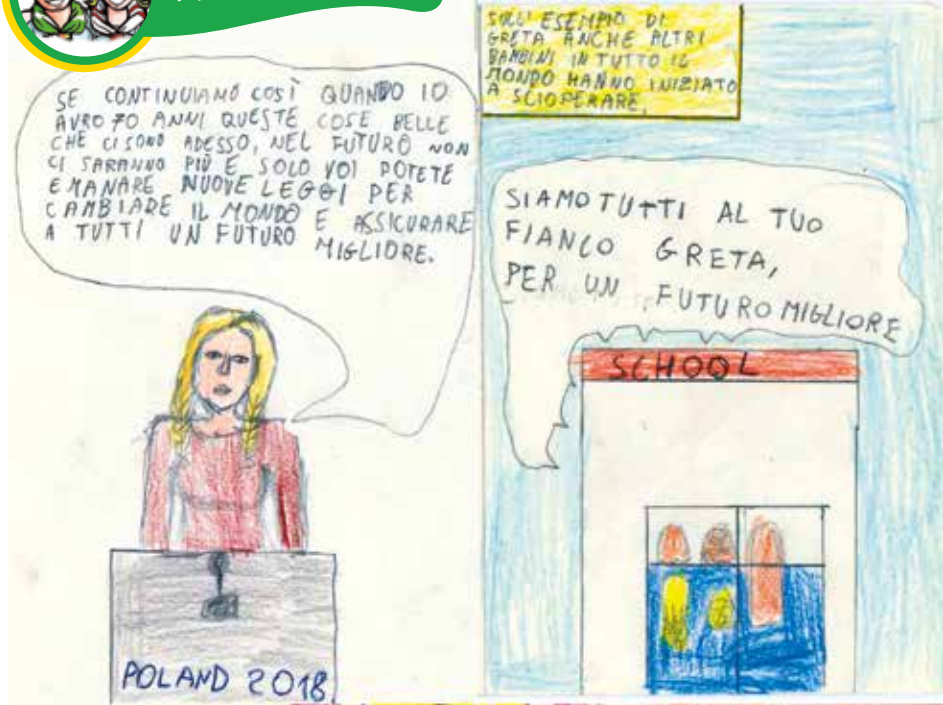 SE CONTINUIAMO COSÌ QUANDO IO
AVRO 70 ANNI QUESTE COSE BELLE
CHE CI SONO ADESSO, NEL FUTURO NON
CI SARANNO PIÙ E SOLO VOI POTETE
EMANARE NUOVE LEGGI PER
CAMBIARE IL MONDO E ASSICURARE
A TUTTI UN FUTURO MIGLIORE.
POLAND 2018
SULL'ESEMPIO DI
GRETA ANCHE ALTRI
BAMBINI IN TUTTO IL
MONDO HANNO INIZIATO
A SCIOPERARE.
SIAMO TUTTI AL TUO
FIANCO GRETA,
PER UN FUTURO MIGLIORE
SCHOOL